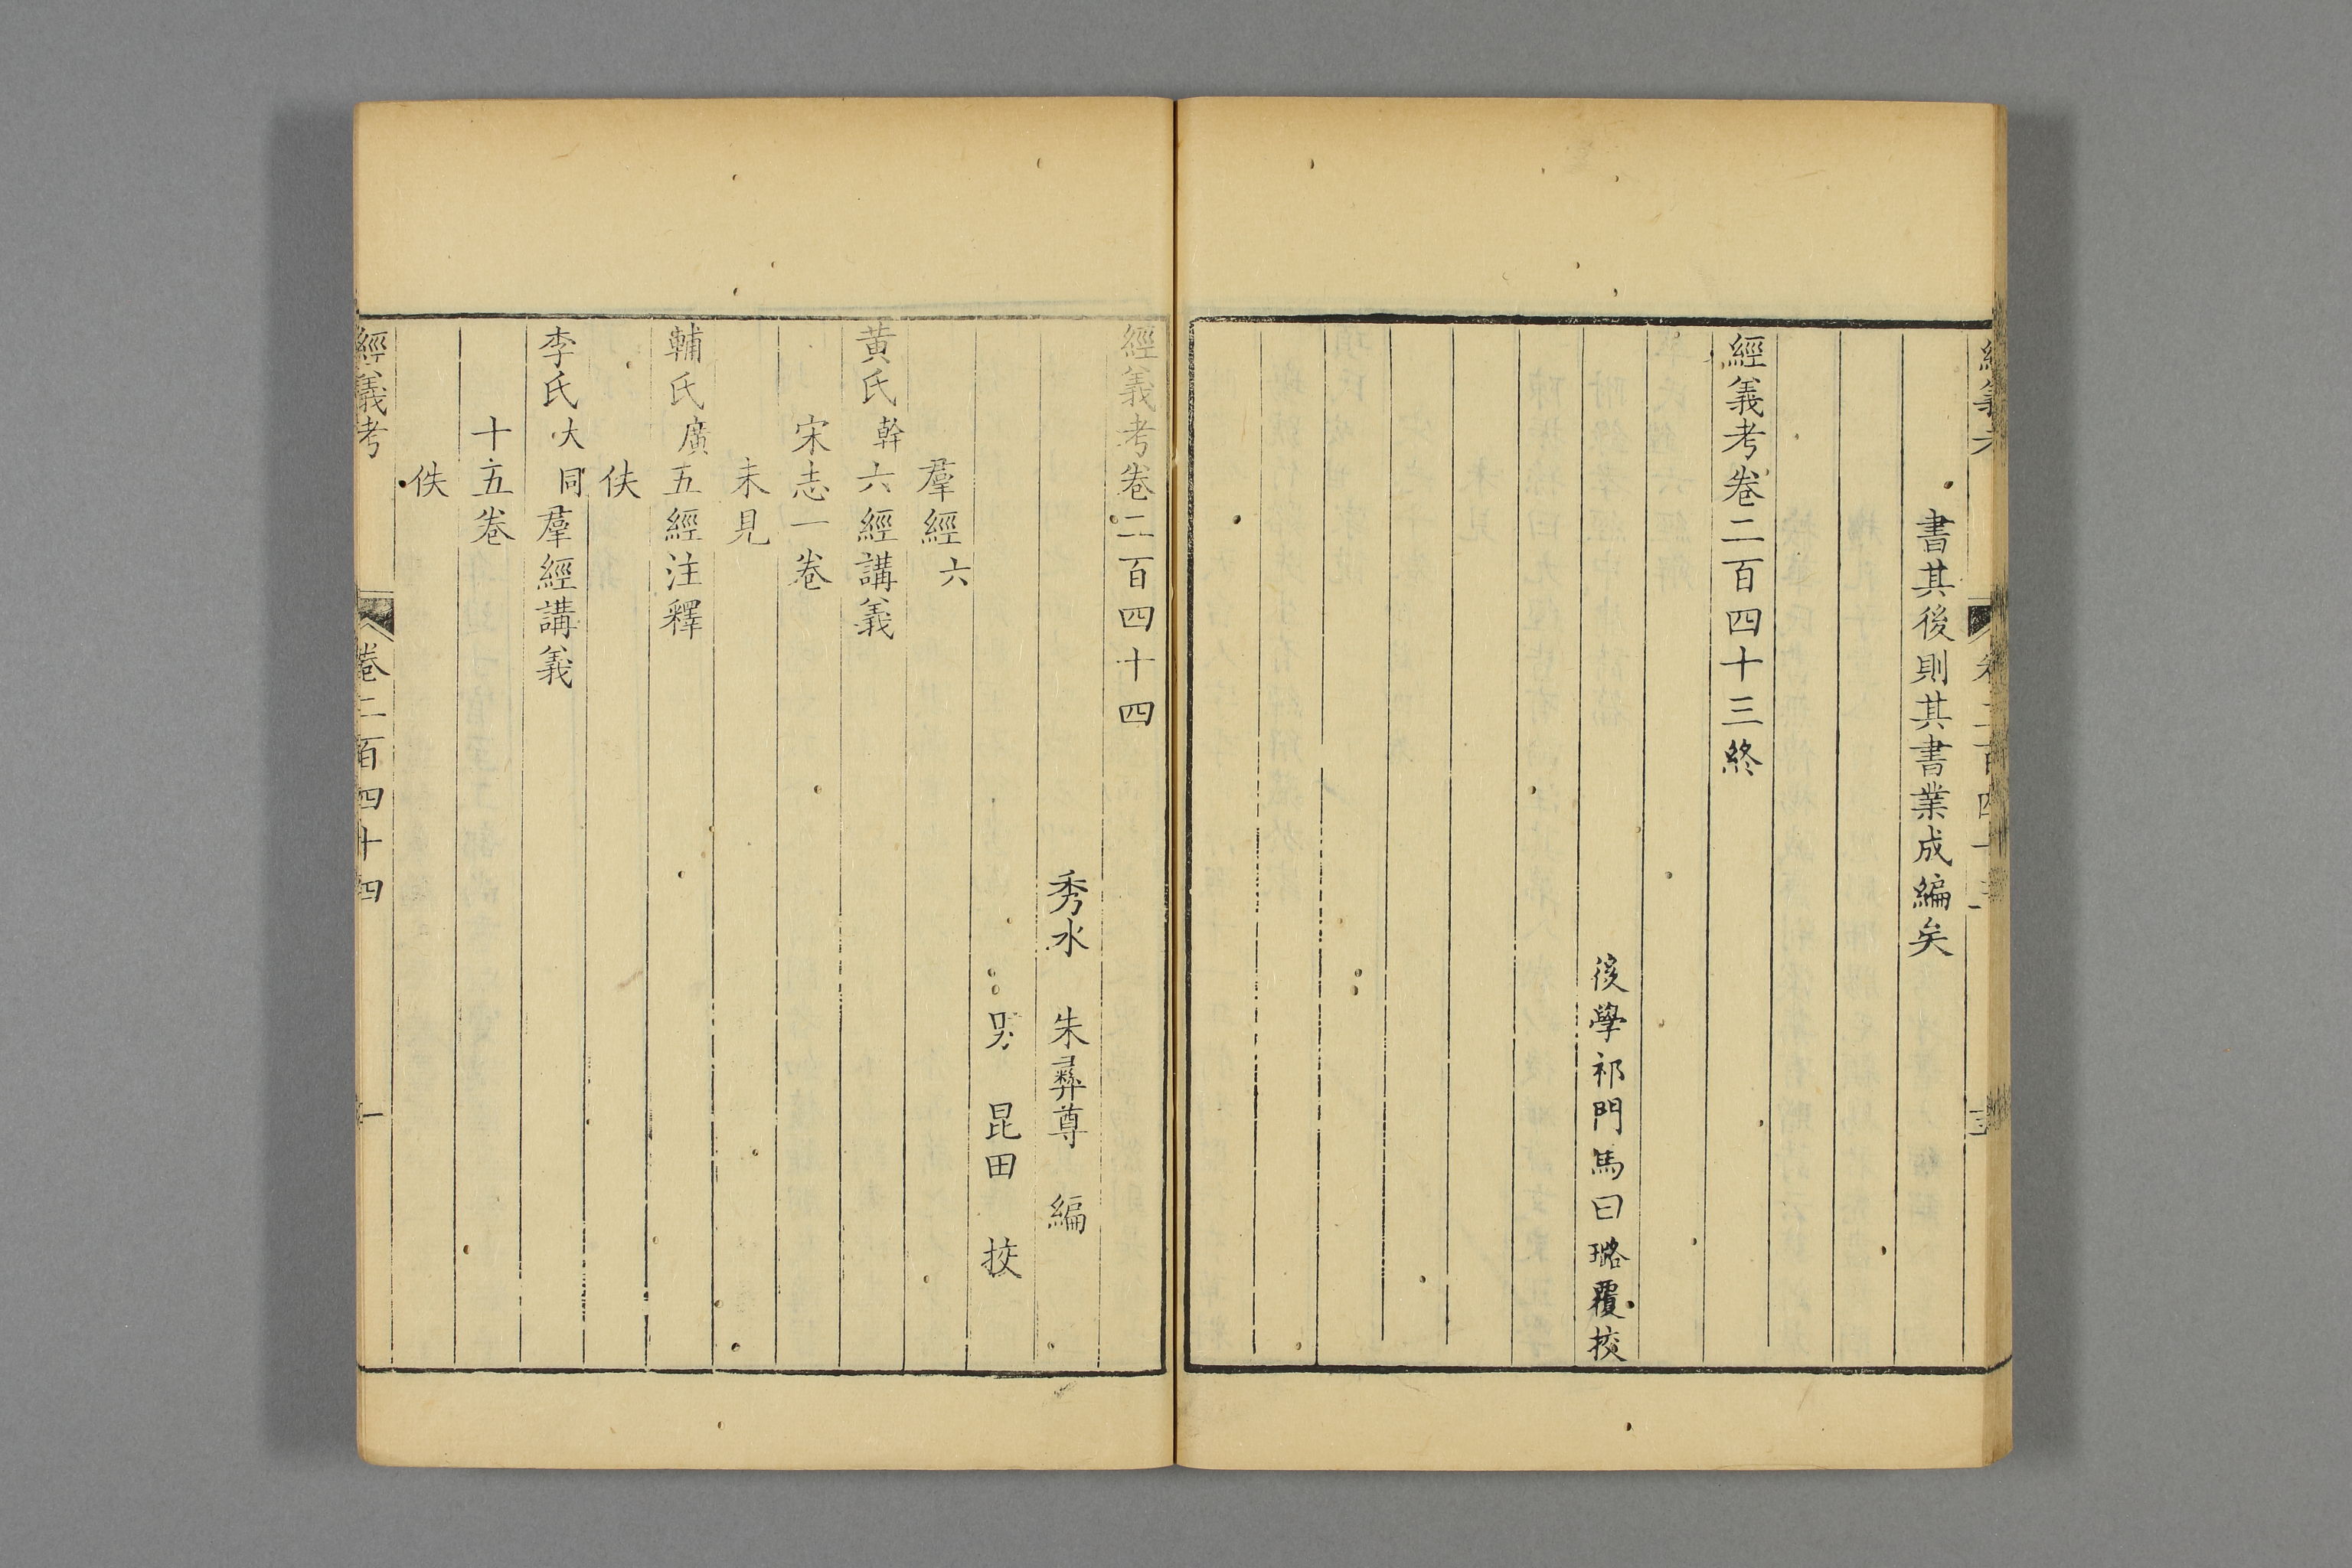 書其後則其書業成編矣
經義考卷二百四十三終
後學祁門馬曰璐覆挍
經義考卷二百四十四
秀水 朱彝尊 編
男 昆田 挍
羣經六
黄氏榦六經講義
宋志一卷
未見
輔氏廣五經注釋
佚
李氏大同羣經講義
十五卷
佚
經義考 卷二百四十四 一